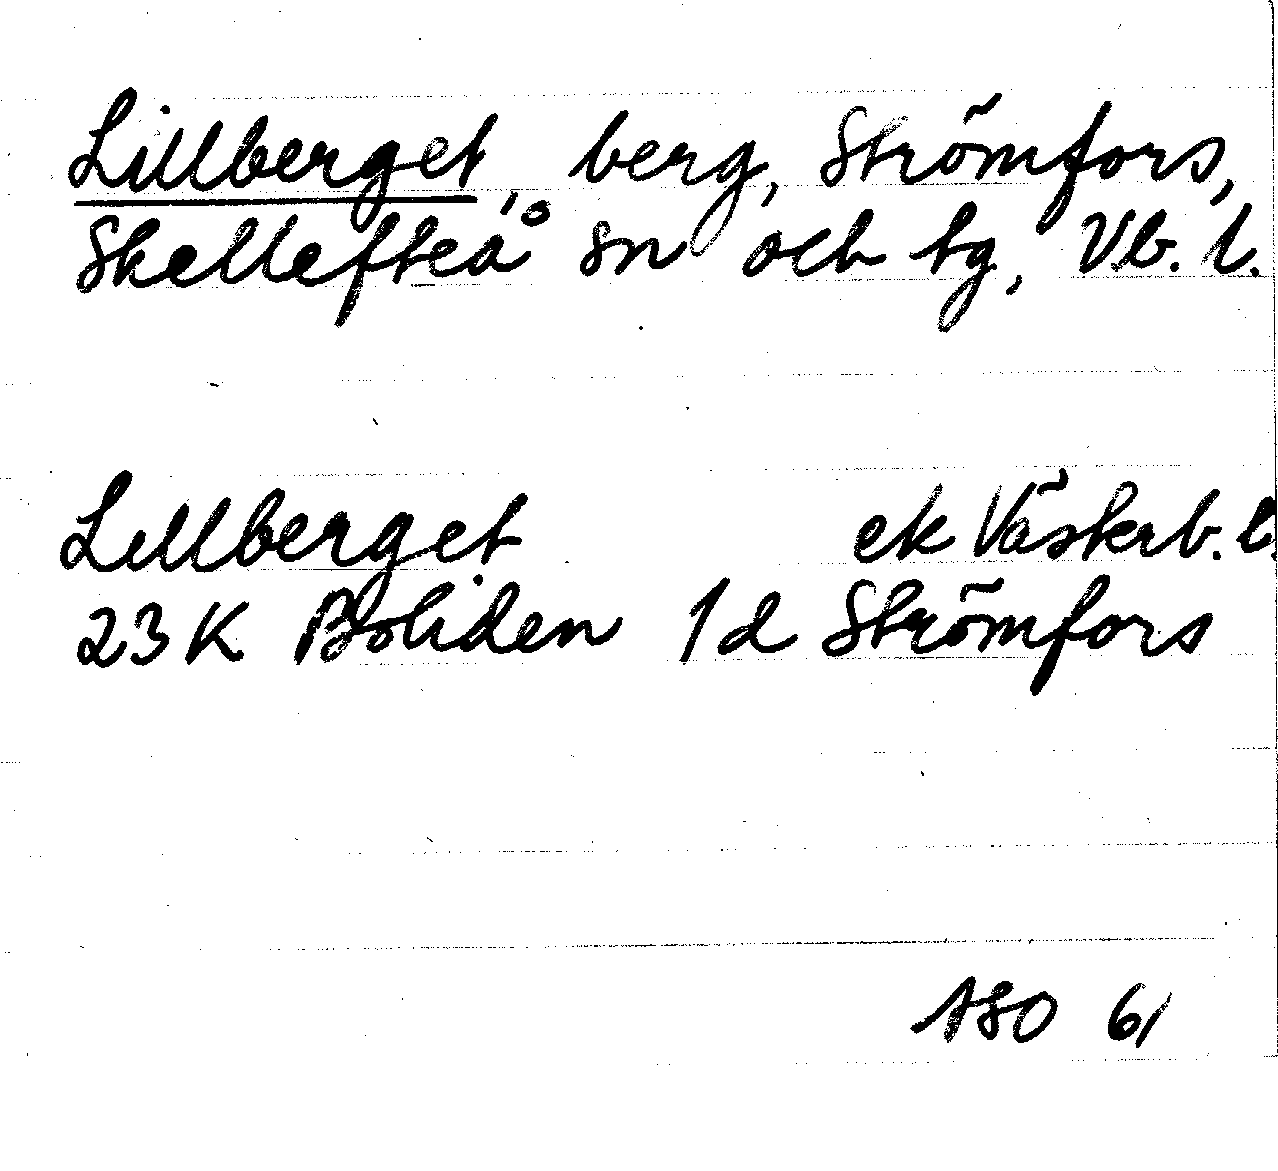 Lillberget, berg, Strömfors,
Skellefteå sn och tg, Vb. l.
Lillberget ek Västerb. l.
23 K Boliden 1d Strömfors
ASO 61